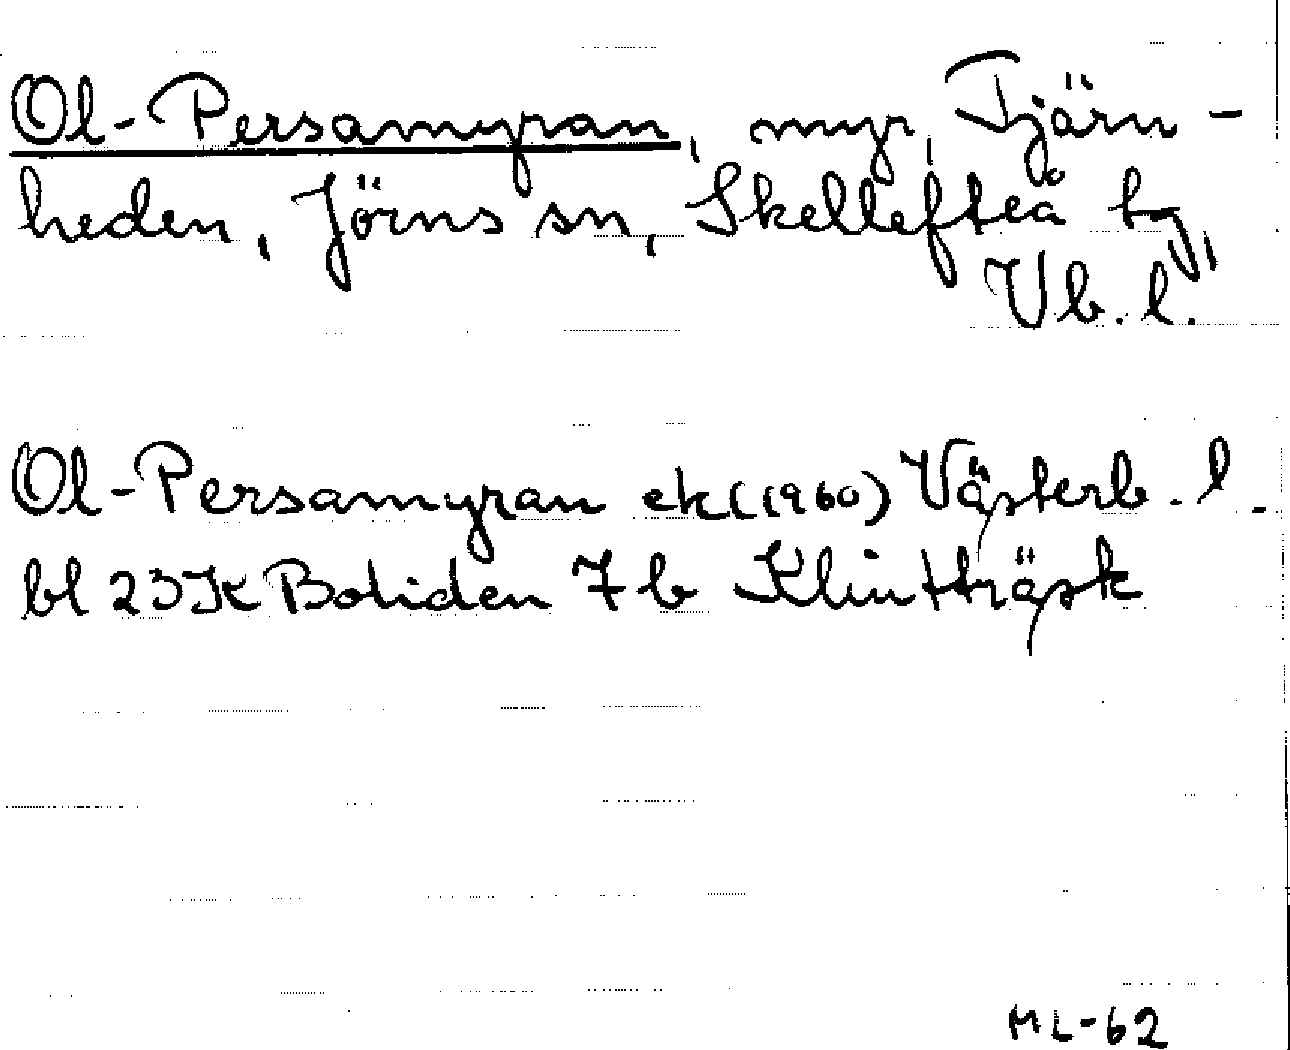 Ol-Persamyran, myr, Tjärn-
heden, Jörns sn, Skellefteå tg,
Vb. l.
Ol-Persamyran ek (1960) Västerb. l.
bl 23K Boliden 7b Klintträsk
ML-62